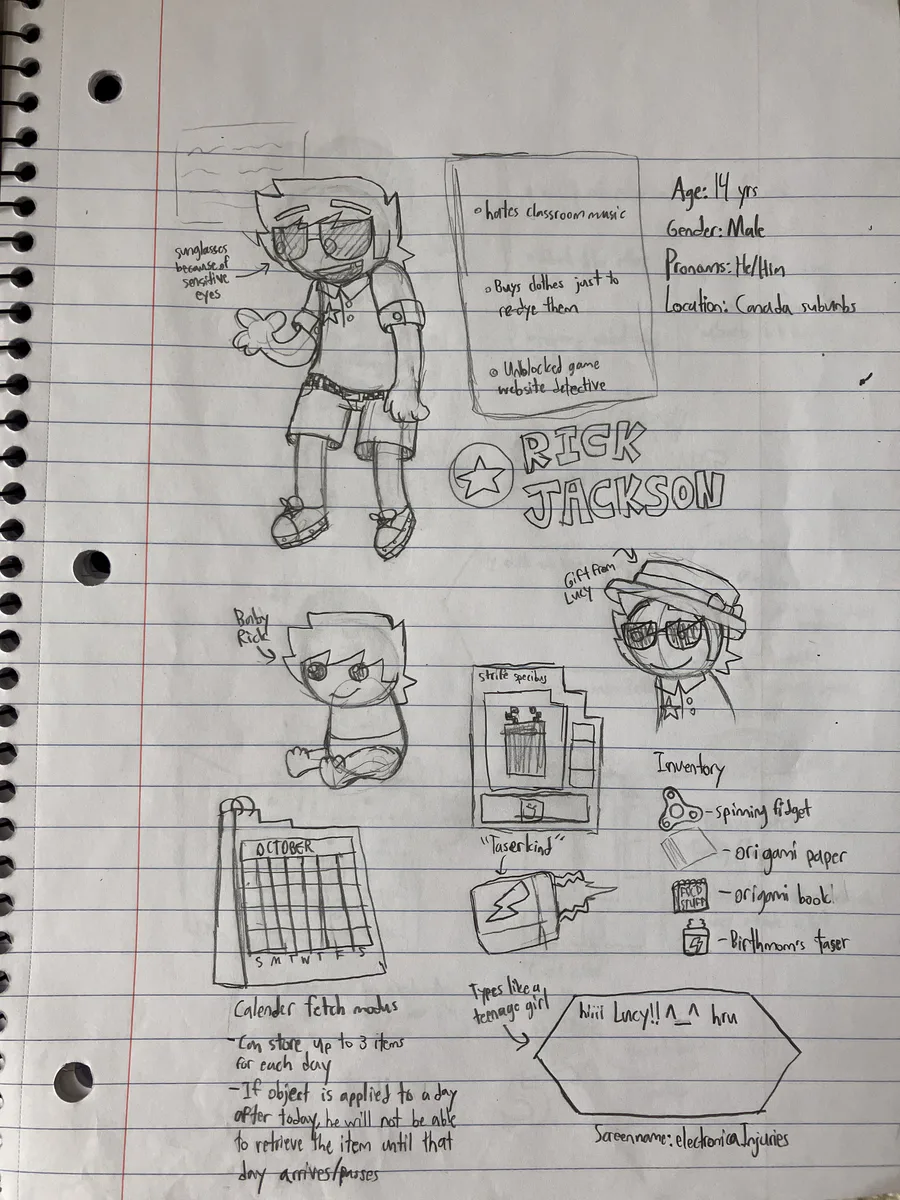 sunglasses
because of
sensitive
eyes
hates classroom music
Buys clothes just to
re-dye them
Unblocked game
website detective
Age: 14 yrs
Gender: Male
Pronouns: He/Him
Location: Canada suburbs
RICK
JACKSON
Gift from
Lucy
Baby
Rick
strife specibus
"Taserkind"
Inventory
-spinning fidget
-origami paper
FOLD
STUFF
-origami book!
-Birthmom's taser
OCTOBER
S M T W T F S
Calender fetch modus
-Can store up to 3 items
for each day
-If object is applied to a day
after today, he will not be able
to retrieve the item until that
day arrives/passes
Types like a
teenage girl
hiiii Lucy!! ^_^ hru
Screenname: electronicaInjuries